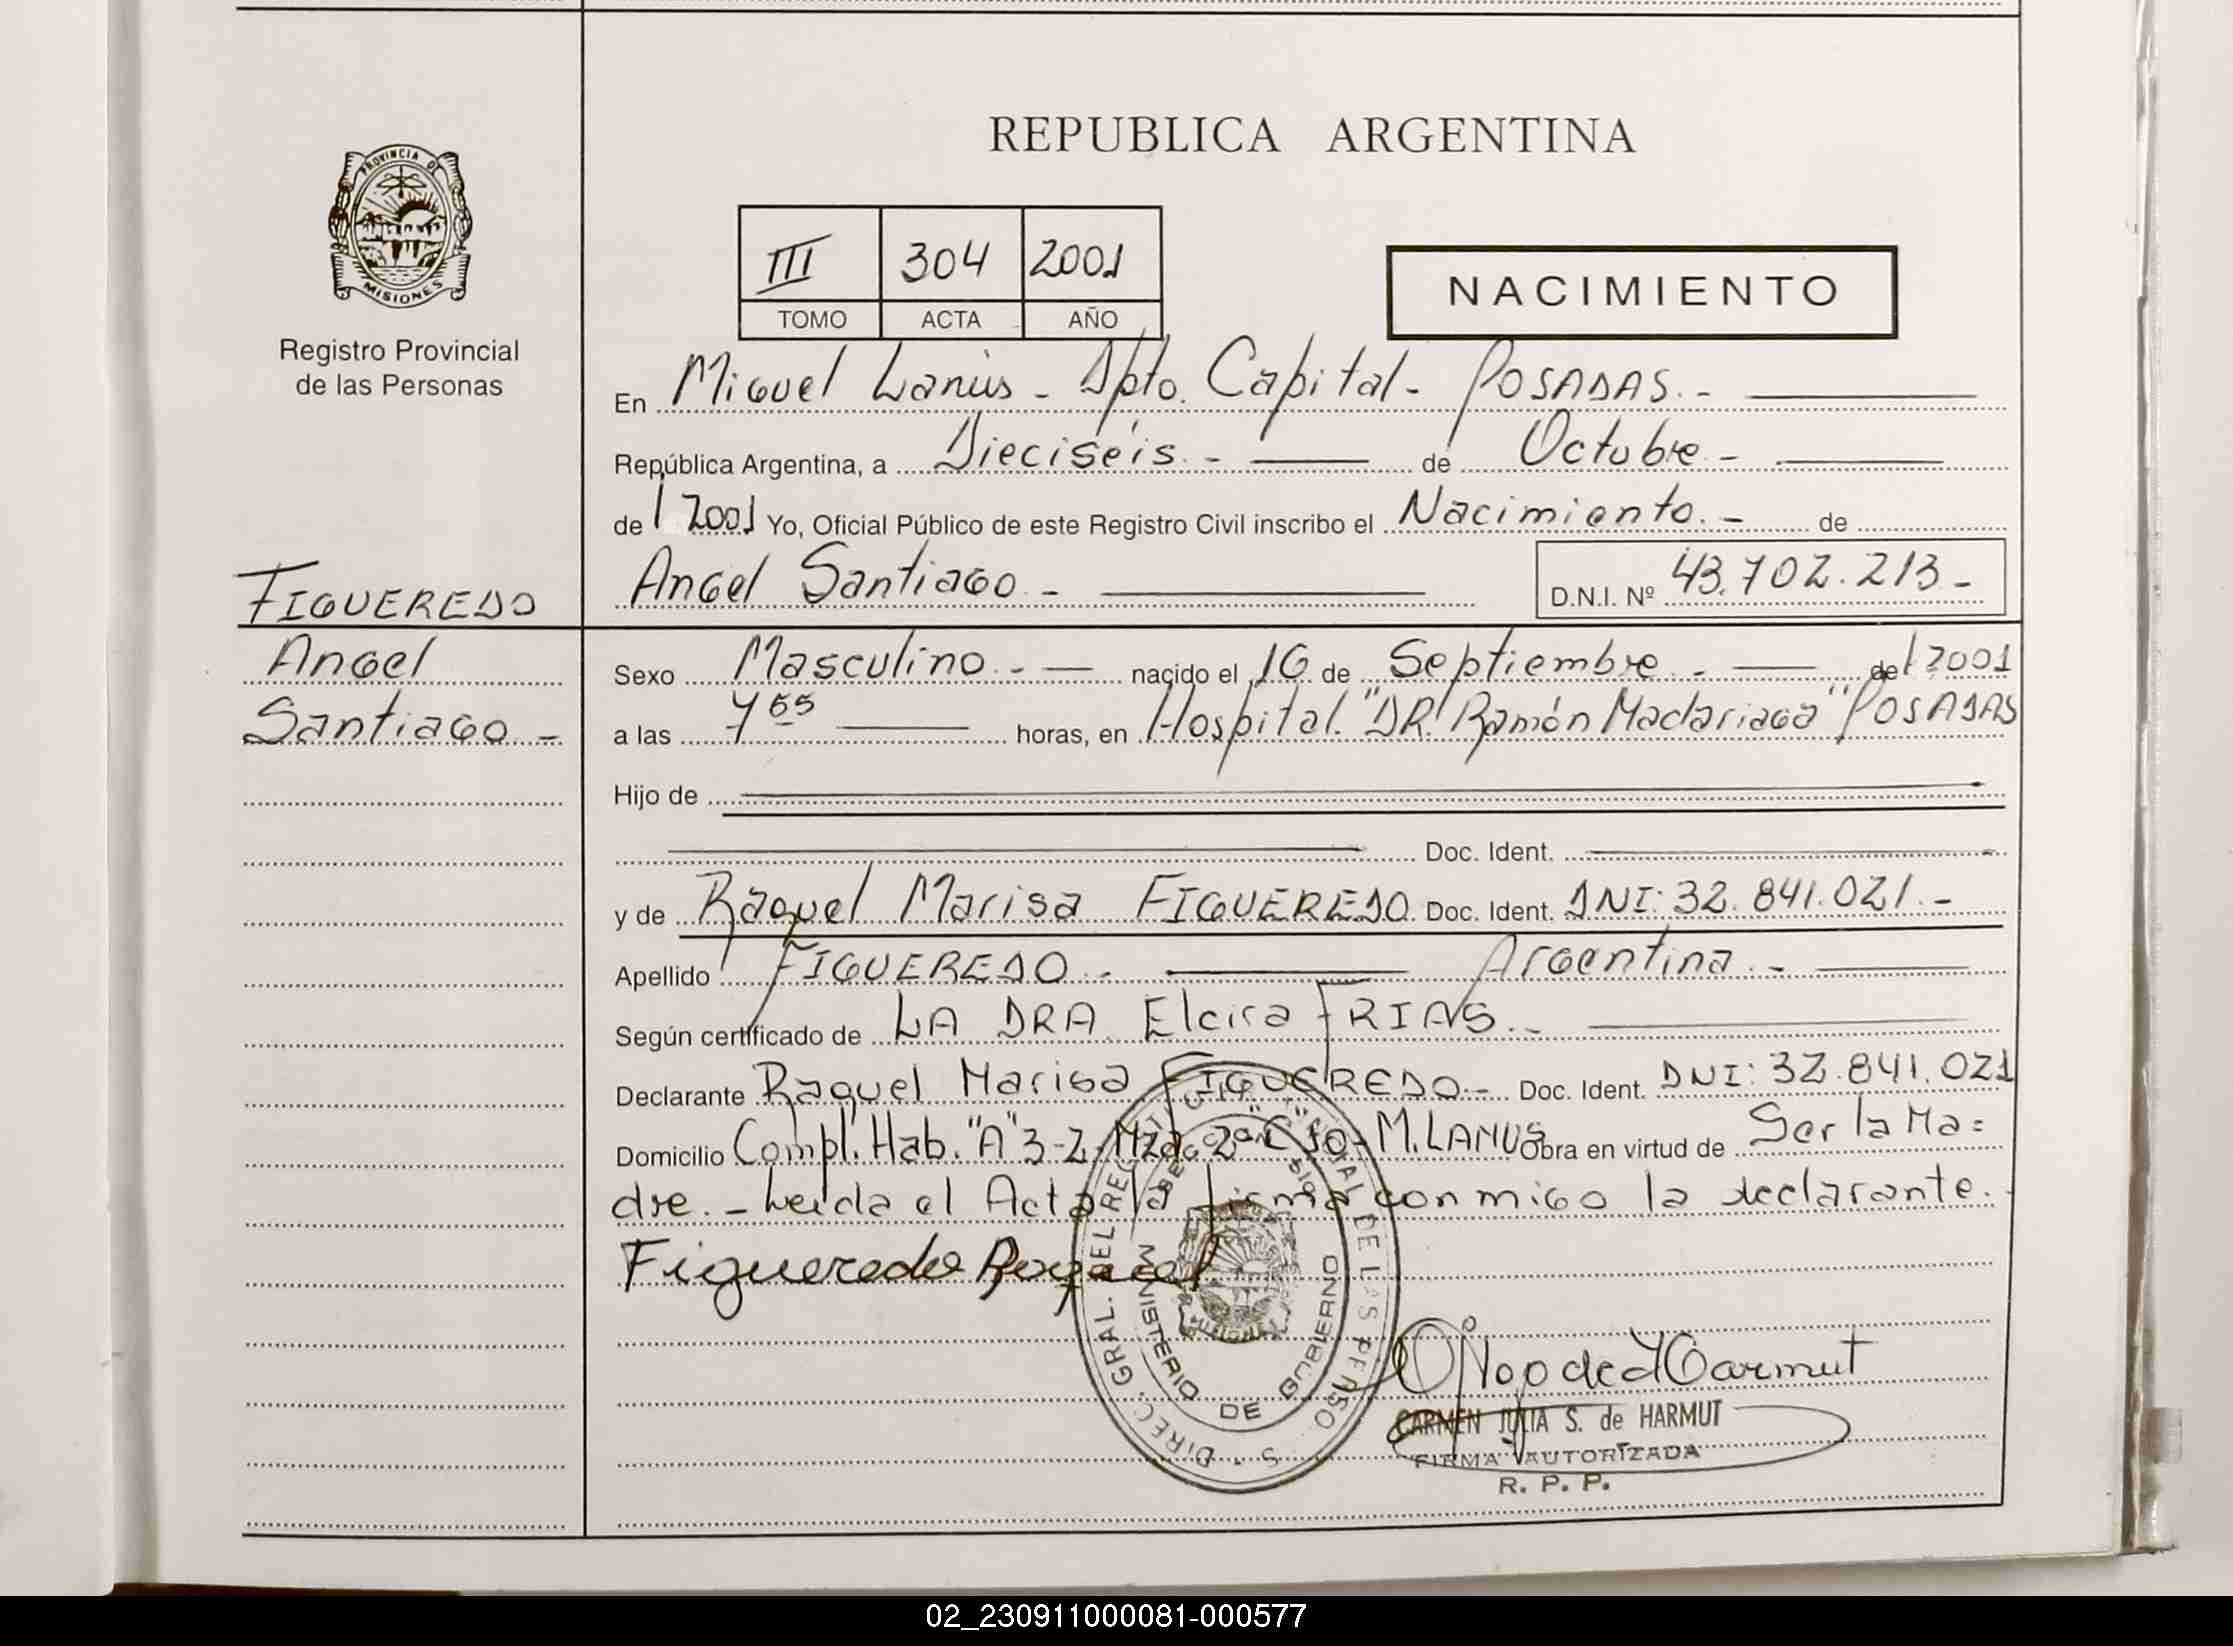 REPUBLICA ARGENTINA
PROVINCIA DE
MISIONES
Registro Provincial
de las Personas
III 304 2001
TOMO ACTA AÑO
NACIMIENTO
En Miguel Lanús - Dpto. Capital - POSADAS.-
República Argentina, a Dieciséis.- de Octubre -
de 2001 Yo, Oficial Público de este Registro Civil inscribo el Nacimiento.- de
Angel Santiago.- D.N.I. Nº 43.702.213-
FIGUEREDO
Angel
Santiago.-
Sexo Masculino.- nacido el 16 de Septiembre.- de 2001
a las 7 55 horas, en Hospital "DR. Ramón Madariaga" POSADAS
Hijo de
Doc. Ident.
y de Raquel Marisa FIGUEREDO Doc. Ident. DNI: 32.841.021.-
Apellido FIGUEREDO.- Argentina.-
Según certificado de LA DRA. Elcira FRIAS.-
Declarante Raquel Marisa FIGUEREDO.- Doc. Ident. DNI: 32.841.021
Domicilio Compl. Hab. "A" 3-2- Mza. 2ª C 10- M. LANUS Obra en virtud de Ser la Ma=
dre.- Leída el Acta la firma conmigo la declarante.
Figueredo Raquel
DIREC. GRAL. DEL REG. DE LAS PERSO S
MINISTERIO DE GOBIERNO
MISIONES
CARMEN JULIA S. de HARMUT
FIRMA AUTORIZADA
R. P. P.
02_230911000081-000577